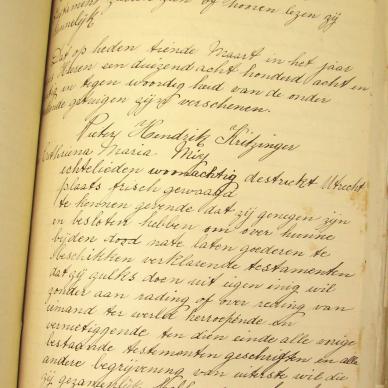 door hen by honen lezen zij
kennelijk.
Dat op heden tiende Maart in het jaar
Heeren een duizend acht honderd acht in
tig in tegen woordig heid van de onder
ende getuigen zijn verschenen.
Pieter Hendrik Kritzinger
Cathriena Maria Mey
echtelieden woonachtig destrickt Utrecht
plaats frisch gewaagd
te kennen gevende dat zij genegen zijn
en besloten hebben om over hunne
bijden dood nate laten goederen te
beschikken verklarende testamenten
dat zij zulks doen uit eigen inig wil
zonder aan rading of over reding van
iemand ter wereld herroepende en
vernietiggende ten dien einde alle enige
bestaande testamonten geschriften en alle
andere begrijpving van uiterste wil die
zij gezamenlijk